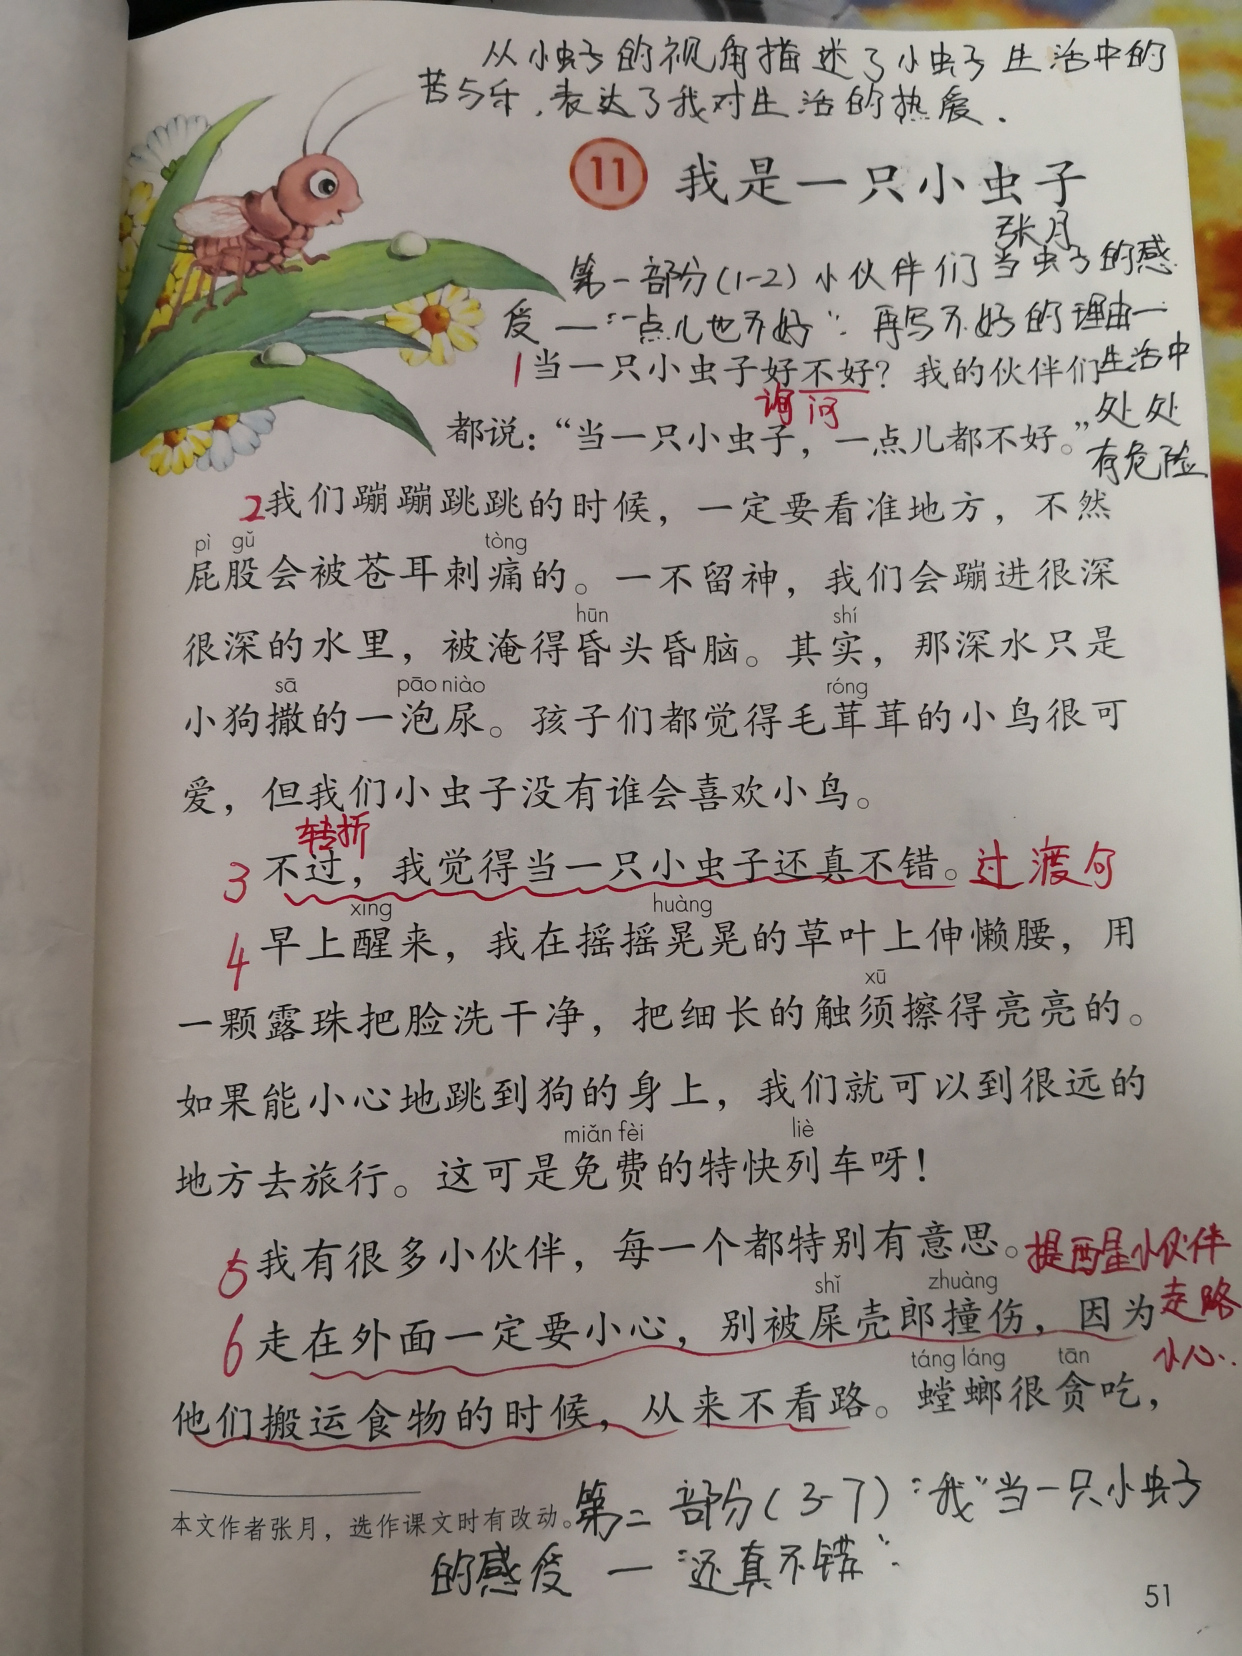 从小虫子的视角描述了小虫子生活中的
苦与乐，表达了我对生活的热爱.
11 我是一只小虫子
张月
第一部分(1-2)小伙伴们当虫子的感
受一“一点儿也不好”.再写不好的理由一
生活中
处处
有危险
1当一只小虫子好不好？我的伙伴们
询问
都说：“当一只小虫子，一点儿都不好。”
2我们蹦蹦跳跳的时候，一定要看准地方，不然
pì gǔ tòng
屁股会被苍耳刺痛的。一不留神，我们会蹦进很深
hūn shí
很深的水里，被淹得昏头昏脑。其实，那深水只是
sā pāo niào róng
小狗撒的一泡尿。孩子们都觉得毛茸茸的小鸟很可
爱，但我们小虫子没有谁会喜欢小鸟。
转折
3不过，我觉得当一只小虫子还真不错。过渡句
xǐng huàng
4早上醒来，我在摇摇晃晃的草叶上伸懒腰，用
xū
一颗露珠把脸洗干净，把细长的触须擦得亮亮的。
如果能小心地跳到狗的身上，我们就可以到很远的
miǎn fèi liè
地方去旅行。这可是免费的特快列车呀！
5我有很多小伙伴，每一个都特别有意思。提醒小伙伴
shǐ zhuàng
6走在外面一定要小心，别被屎壳郎撞伤，因为走路
小心..
táng láng tān
他们搬运食物的时候，从来不看路。螳螂很贪吃，
本文作者张月，选作课文时有改动。
第二部分(3-7)“我”当一只小虫子
的感受一“还真不错”.
51